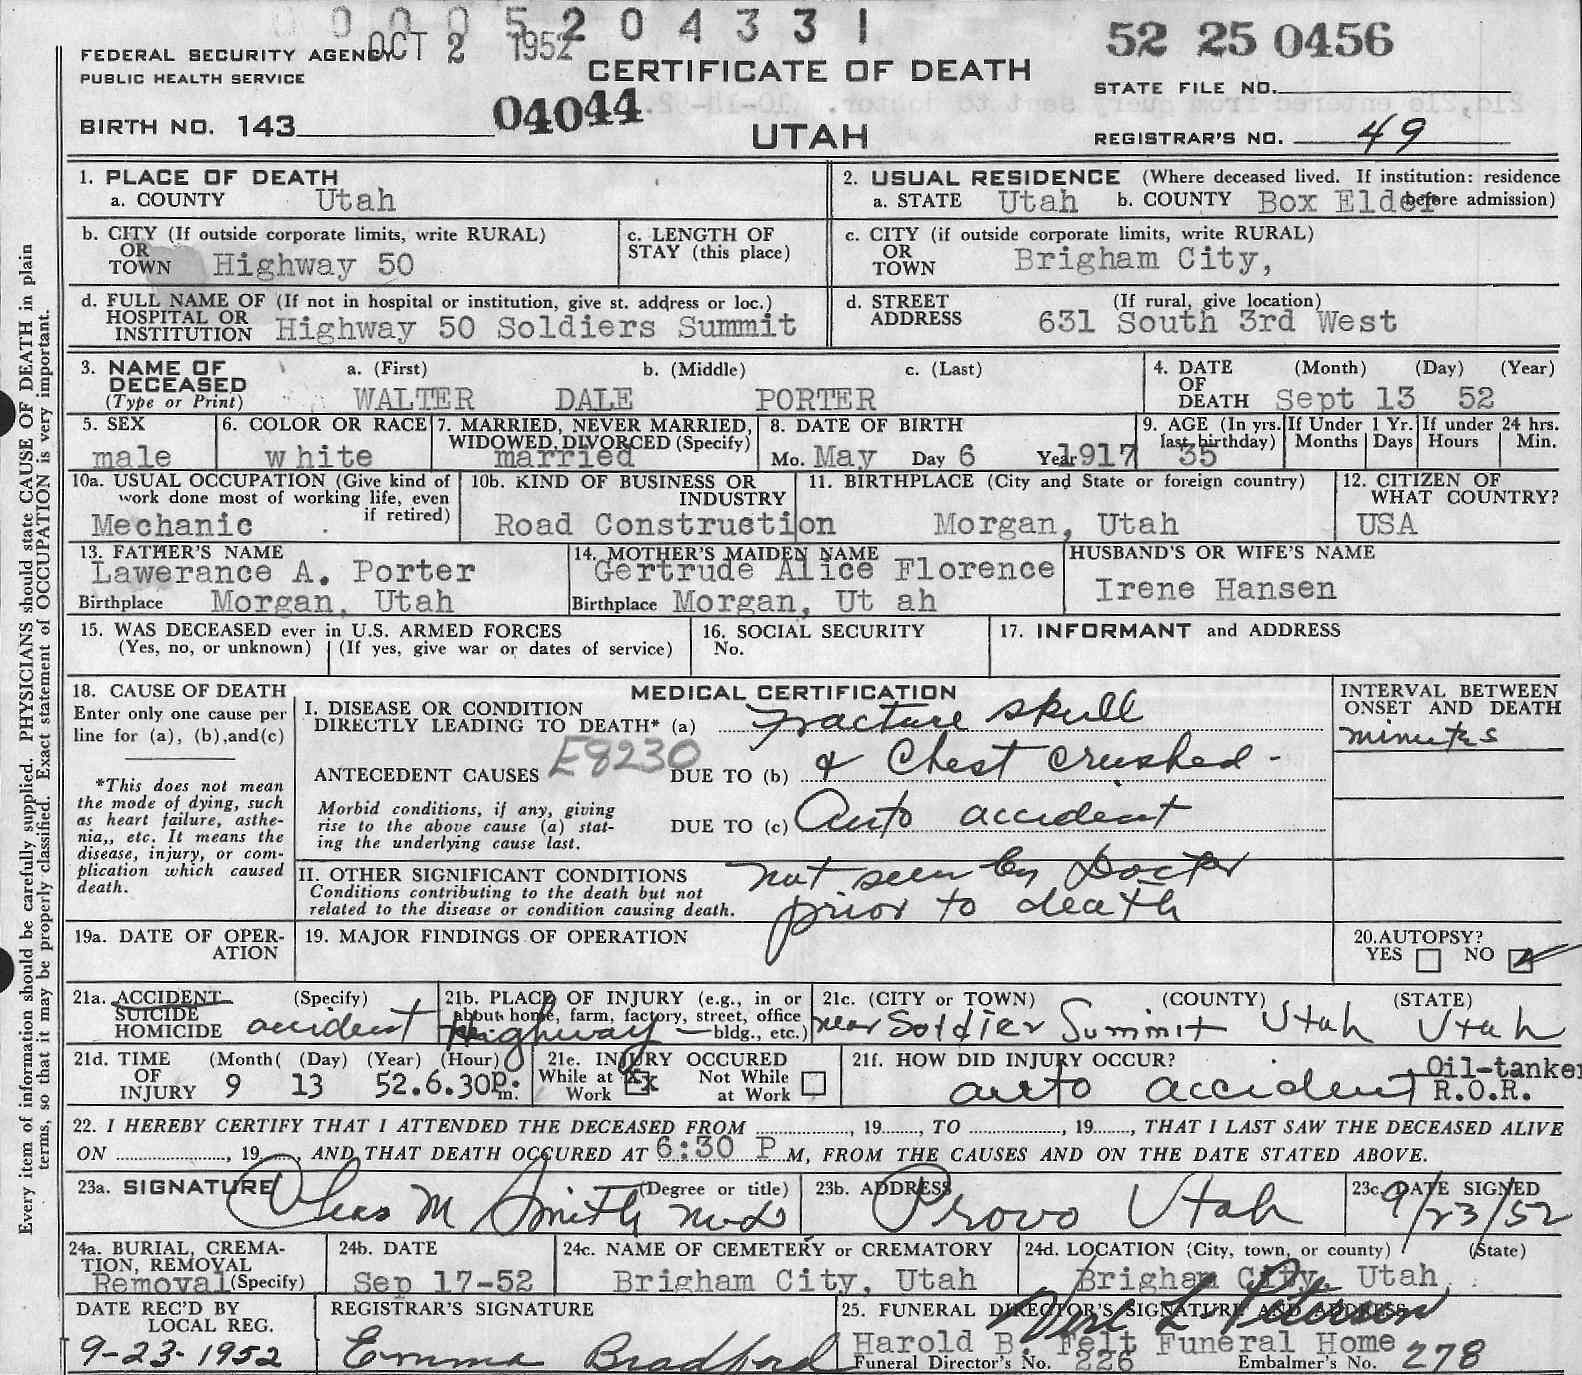 0 0 0 5 2 0 4 3 3 1
OCT 2 1952
52 25 0456
FEDERAL SECURITY AGENCY
PUBLIC HEALTH SERVICE
CERTIFICATE OF DEATH
STATE FILE NO.
BIRTH NO. 143
04044
UTAH
REGISTRAR'S NO. 49
1. PLACE OF DEATH
a. COUNTY Utah
2. USUAL RESIDENCE (Where deceased lived. If institution: residence before admission)
a. STATE Utah b. COUNTY Box Elder
b. CITY (If outside corporate limits, write RURAL)
OR
TOWN Highway 50
c. LENGTH OF
STAY (this place)
c. CITY (if outside corporate limits, write RURAL)
OR
TOWN Brigham City,
d. FULL NAME OF (If not in hospital or institution, give st. address or loc.)
HOSPITAL OR
INSTITUTION Highway 50 Soldiers Summit
d. STREET (If rural, give location)
ADDRESS 631 South 3rd West
3. NAME OF a. (First) b. (Middle) c. (Last)
DECEASED
(Type or Print) WALTER DALE PORTER
4. DATE (Month) (Day) (Year)
OF
DEATH Sept 13 52
5. SEX
male
6. COLOR OR RACE
white
7. MARRIED, NEVER MARRIED,
WIDOWED, DIVORCED (Specify)
married
8. DATE OF BIRTH
Mo. May Day 6 Year 1917
9. AGE (In yrs.
last birthday)
35
If Under 1 Yr.
Months Days
If under 24 hrs.
Hours Min.
10a. USUAL OCCUPATION (Give kind of
work done most of working life, even
if retired)
Mechanic
10b. KIND OF BUSINESS OR
INDUSTRY
Road Construction
11. BIRTHPLACE (City and State or foreign country)
Morgan, Utah
12. CITIZEN OF
WHAT COUNTRY?
USA
13. FATHER'S NAME
Lawerance A. Porter
Birthplace Morgan, Utah
14. MOTHER'S MAIDEN NAME
Gertrude Alice Florence
Birthplace Morgan, Ut ah
HUSBAND'S OR WIFE'S NAME
Irene Hansen
15. WAS DECEASED ever in U.S. ARMED FORCES
(Yes, no, or unknown) (If yes, give war or dates of service)
16. SOCIAL SECURITY
No.
17. INFORMANT and ADDRESS
18. CAUSE OF DEATH
Enter only one cause per
line for (a), (b),and(c)
*This does not mean
the mode of dying, such
as heart failure, asthe-
nia,, etc. It means the
disease, injury, or com-
plication which caused
death.
MEDICAL CERTIFICATION
I. DISEASE OR CONDITION
DIRECTLY LEADING TO DEATH* (a) Fracture skull
E8230
ANTECEDENT CAUSES DUE TO (b) & Chest crushed -
Morbid conditions, if any, giving
rise to the above cause (a) stat-
ing the underlying cause last.
DUE TO (c) Auto accident
II. OTHER SIGNIFICANT CONDITIONS
Conditions contributing to the death but not
related to the disease or condition causing death.
not seen by Doctor
prior to death
INTERVAL BETWEEN
ONSET AND DEATH
minutes
19a. DATE OF OPER-
ATION
19. MAJOR FINDINGS OF OPERATION
20.AUTOPSY?
YES NO
21a. ACCIDENT (Specify)
SUICIDE
HOMICIDE accident
21b. PLACE OF INJURY (e.g., in or
about home, farm, factory, street, office
bldg., etc.)
Highway
21c. (CITY or TOWN) (COUNTY) (STATE)
near Soldier Summit Utah Utah
21d. TIME (Month( (Day) (Year) (Hour)
OF
INJURY 9 13 52. 6.30 p. m.
21e. INJURY OCCURED
While at Work XX Not While at Work
21f. HOW DID INJURY OCCUR?
auto accident Oil-tanker
R.O.R.
22. I HEREBY CERTIFY THAT I ATTENDED THE DECEASED FROM , 19 , TO , 19 , THAT I LAST SAW THE DECEASED ALIVE
ON , 19 , AND THAT DEATH OCCURED AT 6:30 P M, FROM THE CAUSES AND ON THE DATE STATED ABOVE.
23a. SIGNATURE (Degree or title)
Chas M Smith M D
23b. ADDRESS
Provo Utah
23c. DATE SIGNED
9/23/52
24a. BURIAL, CREMA-
TION, REMOVAL
Removal (Specify)
24b. DATE
Sep 17-52
24c. NAME OF CEMETERY or CREMATORY
Brigham City, Utah
24d. LOCATION (City, town, or county) (State)
Brigham City, Utah
DATE REC'D BY
LOCAL REG.
9-23-1952
REGISTRAR'S SIGNATURE
Emma Bradford
25. FUNERAL DIRECTOR'S SIGNATURE AND ADDRESS
Harold B. Felt Funeral Home
Funeral Director's No. 226 Embalmer's No. 278
Every item of information should be carefully supplied. PHYSICIANS should state CAUSE OF DEATH in plain
terms, so that it may be properly classified. Exact statement of OCCUPATION is very important.